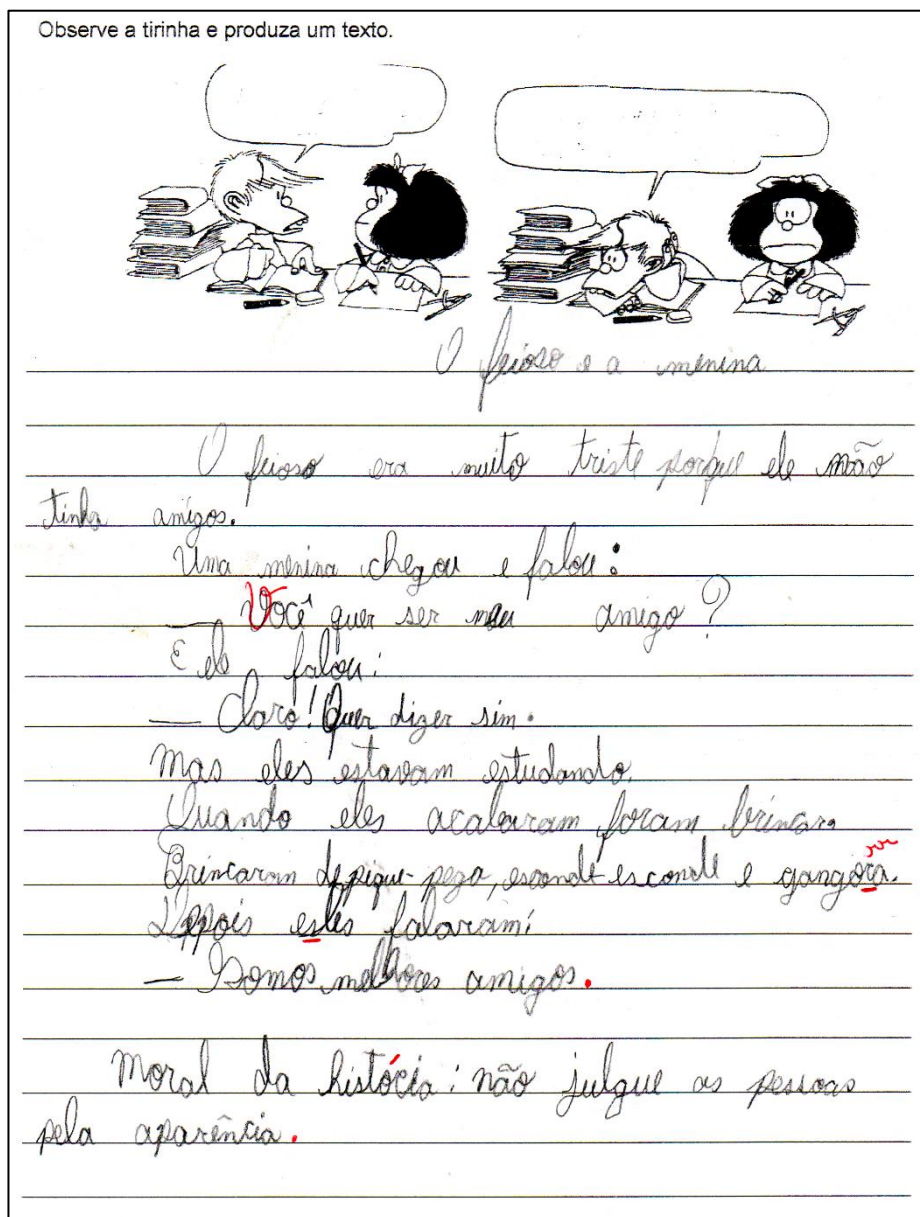 Observe a tirinha e produza um texto.
O feioso e a menina
O feioso era muito triste porque ele não
tinha amigos.
Uma menina chegou e falou:
— Você quer ser meu amigo?
E ele falou:
— Claro! Quer dizer sim.
Mas eles estavam estudando.
Quando eles acabaram foram brincar.
Brincaram de pique-pega, esconde-esconde e gangora.
rr
Deppois esles falaram:
— Somos melhores amigos.
Moral da histócia: não julgue as pessoas
pela aparência.